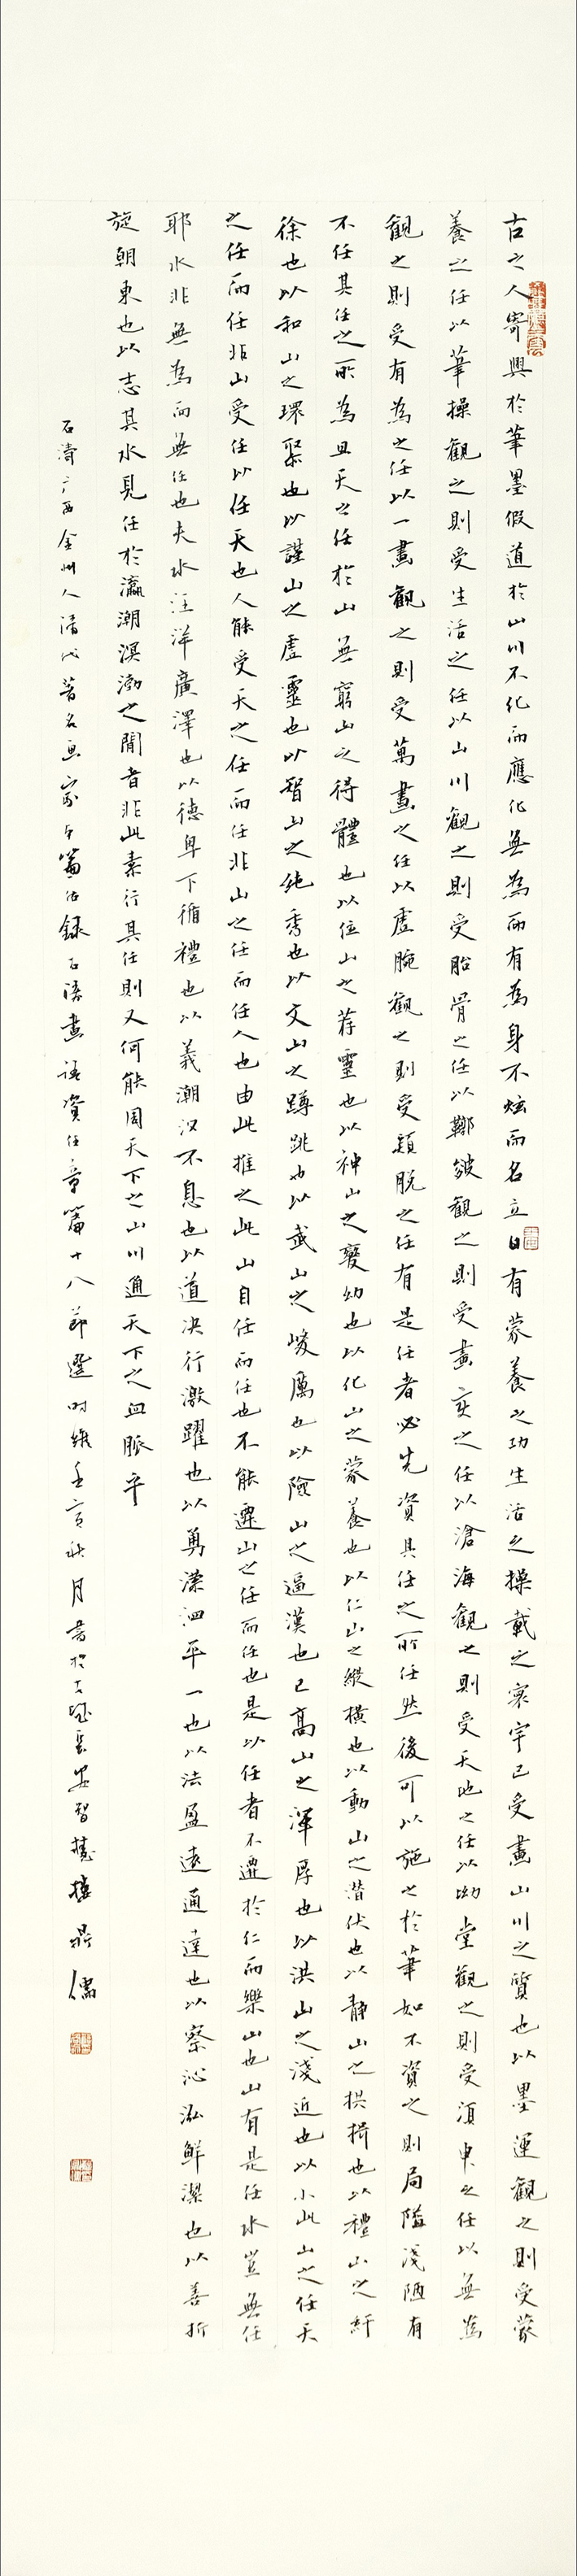 古之人寄興於筆墨假道於山川不化而應化無為而有為身不炫而名立因有蒙養之功生活之操載之寰宇已受畫山川之質也以墨運觀之則受蒙
養之任以筆操觀之則受生活之任以山川觀之則受胎骨之任以鞹皴觀之則受畫變之任以滄海觀之則受天地之任以坳堂觀之則受須臾之任以無為
觀之則受有為之任以一畫觀之則受萬畫之任以虛腕觀之則受穎脫之任有是任者必先資其任之所任然後可以施之於筆如不資之則局隘淺陋有
不任其任之所為且天之任於山無窮山之得體也以位山之荐靈也以神山之變幻也以化山之蒙養也以仁山之縱橫也以動山之潛伏也以靜山之拱揖也以禮山之紆
徐也以和山之環聚也以謹山之虛靈也以智山之純秀也以文山之蹲跳也以武山之峻厲也以險山之逼漢也已高山之渾厚也以洪山之淺近也以小此山之任天
之任而任非山受任以任天也人能受天之任而任非山之任而任人也由此推之此山自任而任也不能遷山之任而任也是以任者不遷於仁而樂山也山有是任水豈無任
耶水非無為而無任也夫水汪洋廣澤也以德卑下循禮也以義潮汐不息也以道決行激躍也以勇瀠洄平一也以法盈遠通達也以察沁泓鮮潔也以善折
旋朝東也以志其水見任於瀛潮溟渤之間者非此素行其任則又何能周天下之山川通天下之血脈乎
石濤广西全州人清代著名画家本篇佑錄石濤畫語資任章篇十八節選時維壬寅秋月書於長安智慧樓鼎儒